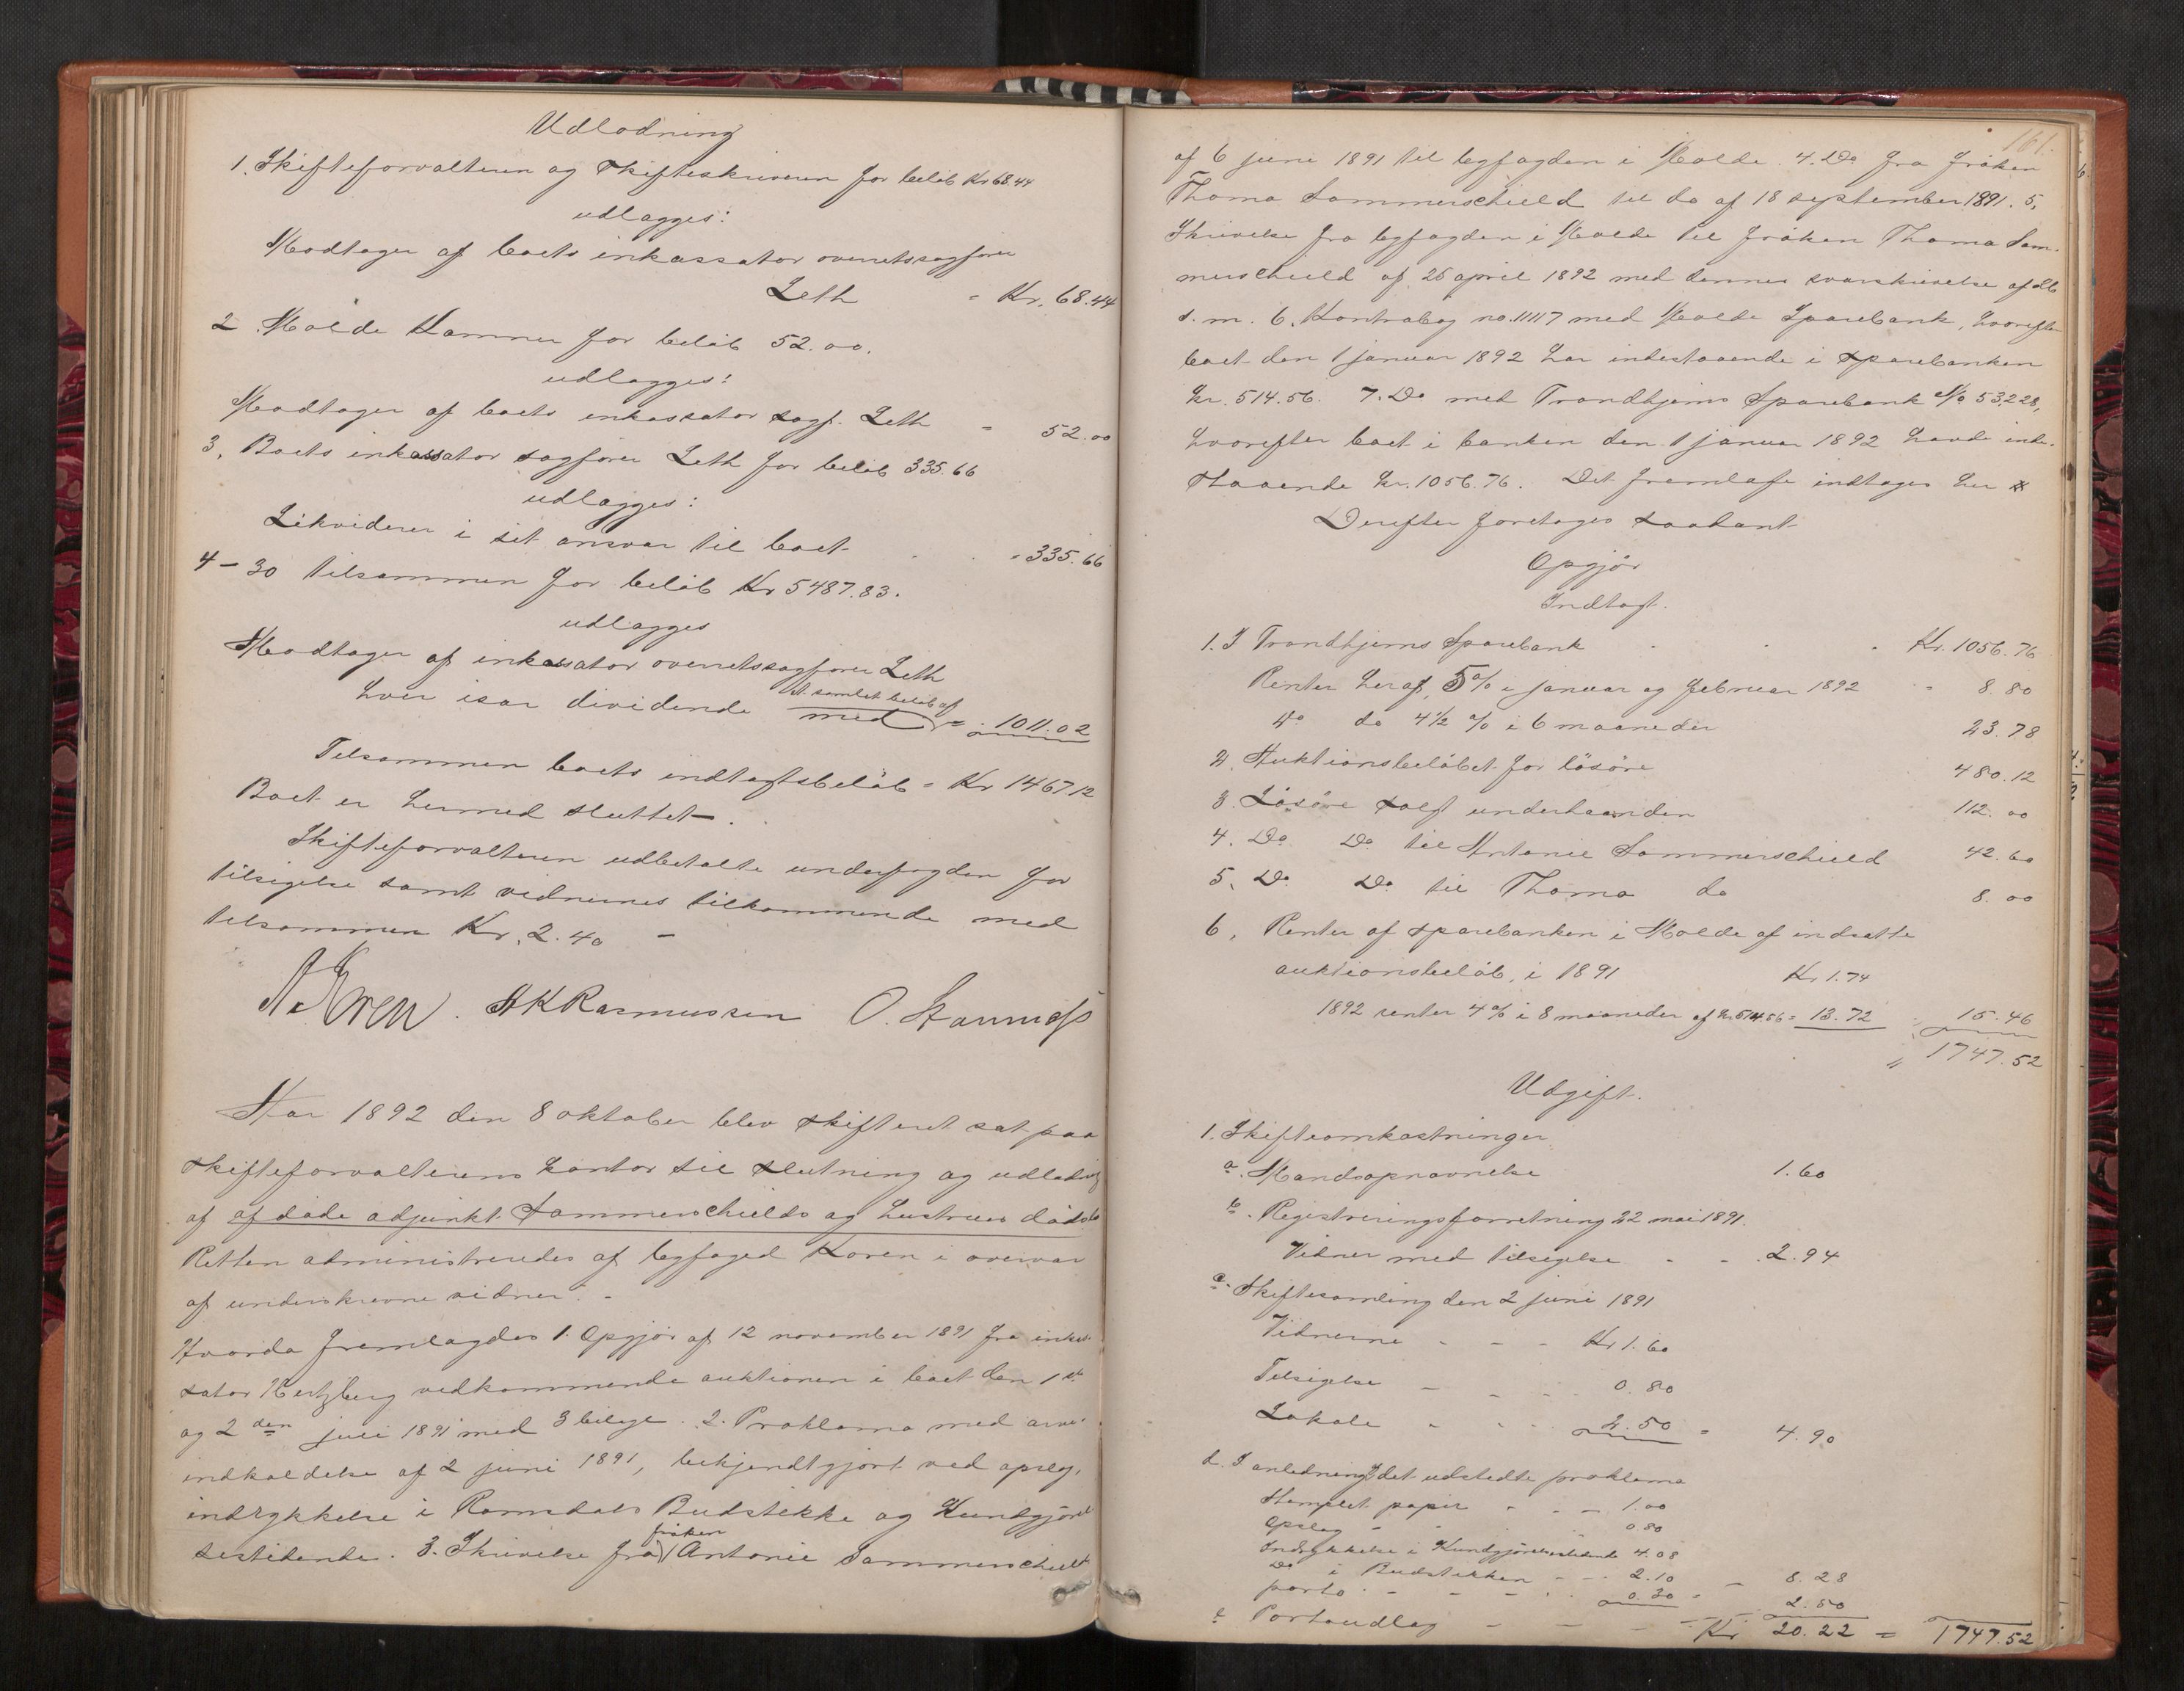 Udlodning
1. Skifteforvalteren og skifteskriveren for beløb Kr 68.44
udlægges:
Modtager af boets inkassator overretssagfører
Leth = Kr. 68.44
2. Molde Kamner for beløb 52.00.
udlægges:
Modtager af boets inkassator sagf. Leth = 52.00
3. Boets inkassator sagfører Leth for beløb 335.66
udlægges:
Likviderer i sit ansvar til boet = 335.66
4–30 tilsammen for beløb Kr 5487.83.
udlægges
Modtager af inkassator overretssagfører Leth
et samlet beløb af
hver især dividende med = 1011.02
Tilsammen boets indtægtsbeløb = Kr 1467.12
Boet er hermed sluttet.
Skifteforvalteren udbetalte underfogden for
tilsigelse samt vidnernes tilkommende med
tilsammen Kr. 2.40 –
A K Rasmussen O. Stamnes
Aar 1892 den 8 oktober blev skifteret sat paa
skifteforvalterens kontor til slutning og udlodning
af afdøde adjunkt Sommerschields og hustrues dødsbo
Retten administreredes af byfoged Koren i overvær
af underskrevne vidner. –
Hvorda fremlagdes 1. Opgjør af 12 november 1891 fra inkas-
sator Hertzberg vedkommende auktionen i boet den 1ste
og 2den juli 1891 med 3 bilage. 2. Proklama med arve-
indkaldelse af 2 juni 1891, bekjendtgjort ved opslag,
indrykkelse i Romsdals Budstikke og Kundgjørel-
frøken
sestidende. 3. Skrivelse fra Antonie Sommerschield
161.
af 6 juni 1891 til byfogden i Molde. 4. Do fra frøken
Thoma Sommerschield til do af 18 september 1891. 5.
Skrivelse fra byfogden i Molde til frøken Thoma Som-
merschield af 25 april 1892 med dennes svarskrivelse af 26
s. m. 6. Kontrabog no. 11117 med Molde Sparebank, hvorefter
boet den 1 januar 1892 har indestaaende i sparebanken
kr. 514.56. 7. Do med Trondhjems Sparebank No 53228,
hvorefter boet i banken den 1 januar 1892 havde inde-
staaende kr. 1056.76. Det fremlagte indtages her
Derefter foretoges saadant
Opgjør
Indtægt.
1. I Trondhjems Sparebank Kr. 1056.76
Renter heraf, 5 % i januar og februar 1892 8.80
Do do 4½ % i 6 maaneder 23.78
2. Auktionsbeløbet for løsøre 480.12
3. Løsøre solgt underhaanden 112.00
4. Do Do til Antonie Sommerschield 42.60
5. Do Do til Thoma do 8.00
6. Renter af sparebanken i Molde af indsatte
auktionsbeløb, i 1891 Kr 1.74
1892 renter 4 % i 8 maaneder af kr 514.56 = 13.72 15.46
" 1747.52
Udgift.
1. Skifteomkostninger
a. Mandsopnævnelse 1.60
b. Registreringsforretning 22 mai 1891.
Vidner med tilsigelse 2.94
c. Skiftesamling den 2 juni 1891
Vidnerne Kr 1.60
Tilsigelse 0.80
Lokale 2.50 = 4.90
d. I anledning det udstedte proklama
Stemplet papir 1.00
Opslag 0.80
Indrykkelse i Kundgjørelsestidende 4.08
Do i Budstikken 2.10
porto 0.30 8.28
e. Portoudlæg 2.50
Kr 20.22 = 1747.52